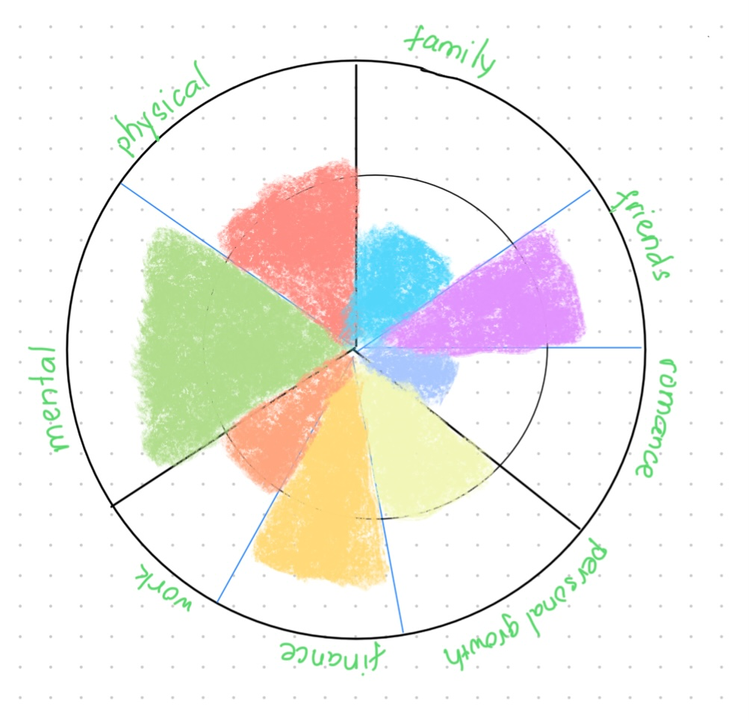 family
friends
romance
personal growth
finance
work
mental
physical